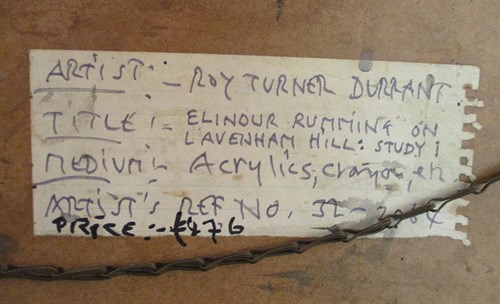 ARTIST: - ROY TURNER DURRANT
TITLE: - ELINOUR RUMMING ON
LAVENHAM HILL: STUDY 1
MEDIUM: - Acrylics, crayon, etc
ARTIST'S REF NO. 32-
PRICE:- £476